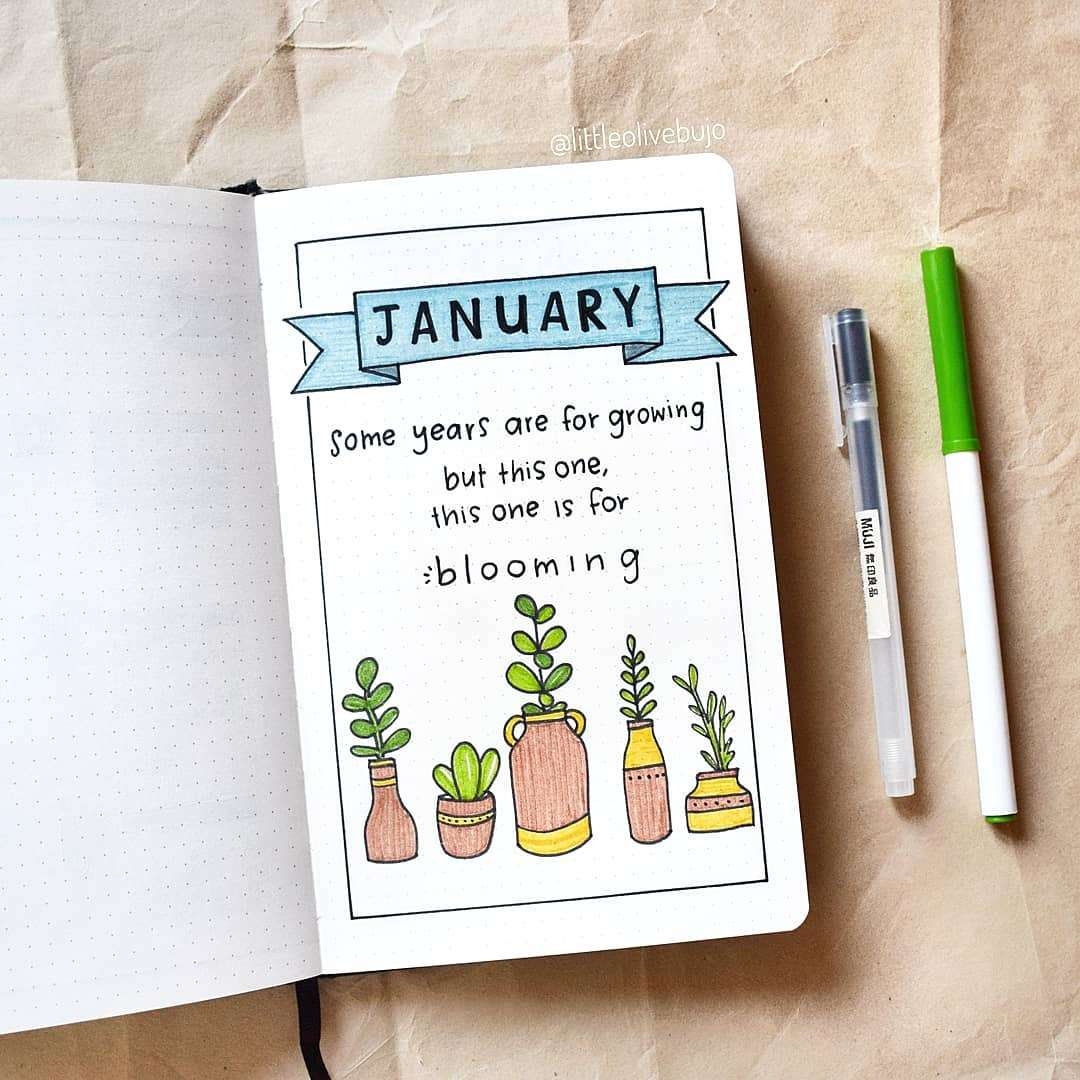 @littleolivebujo
JANUARY
some years are for growing
but this one,
this one is for
blooming
MUJI 無印良品